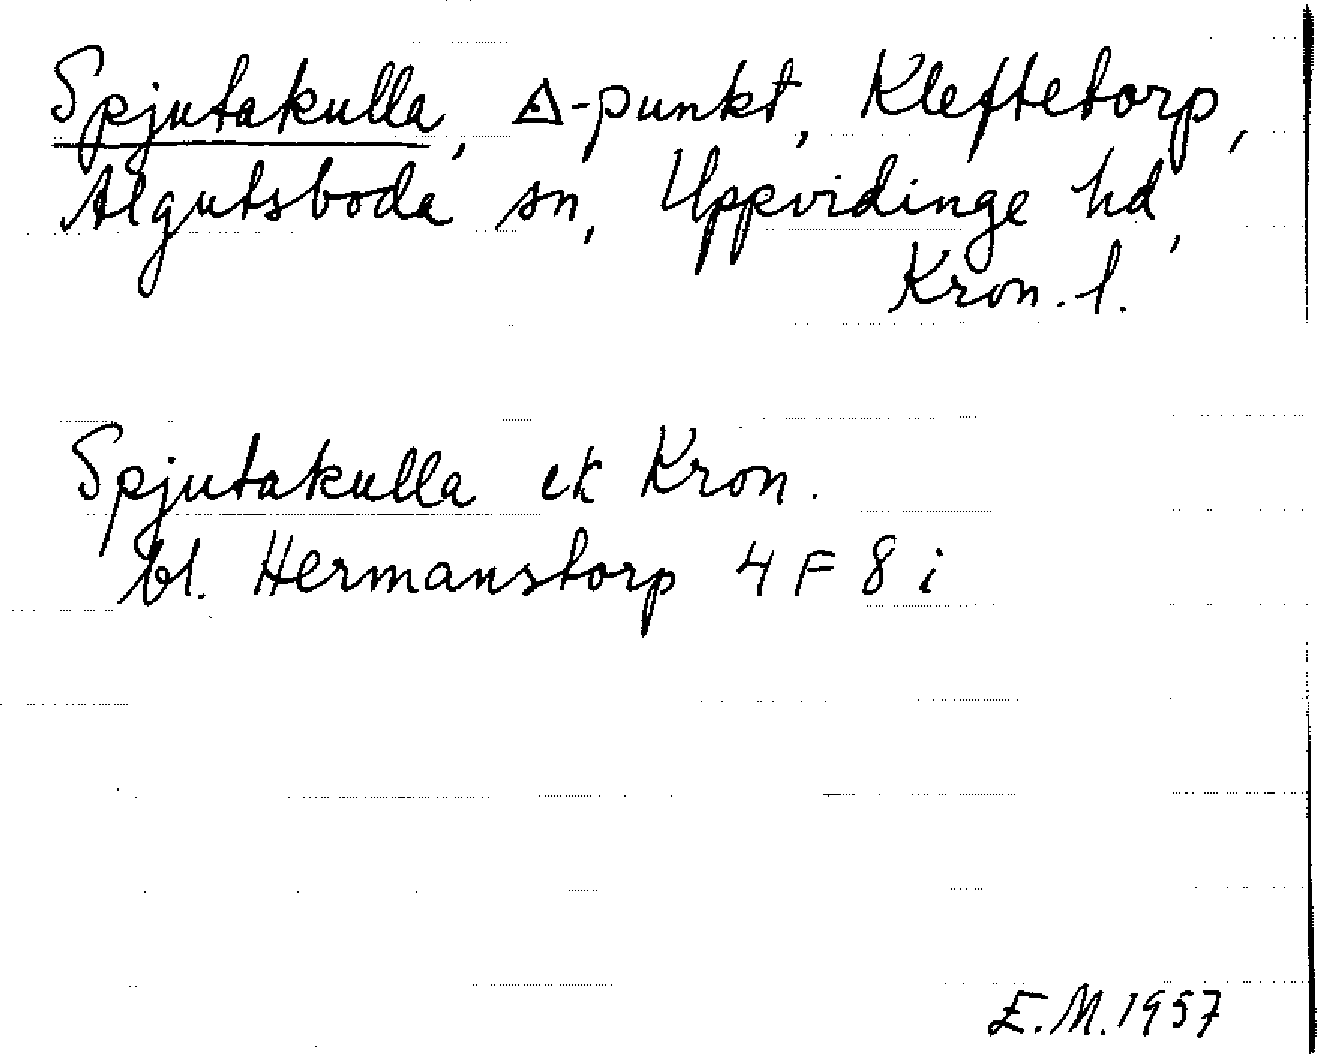 Spjutakulla, △-punkt, Kleftetorp,
Algutsboda sn, Uppvidinge hd,
Kron. l.
Spjutakulla ek Kron.
bl. Hermanstorp 4 F 8 i
E.M. 1957